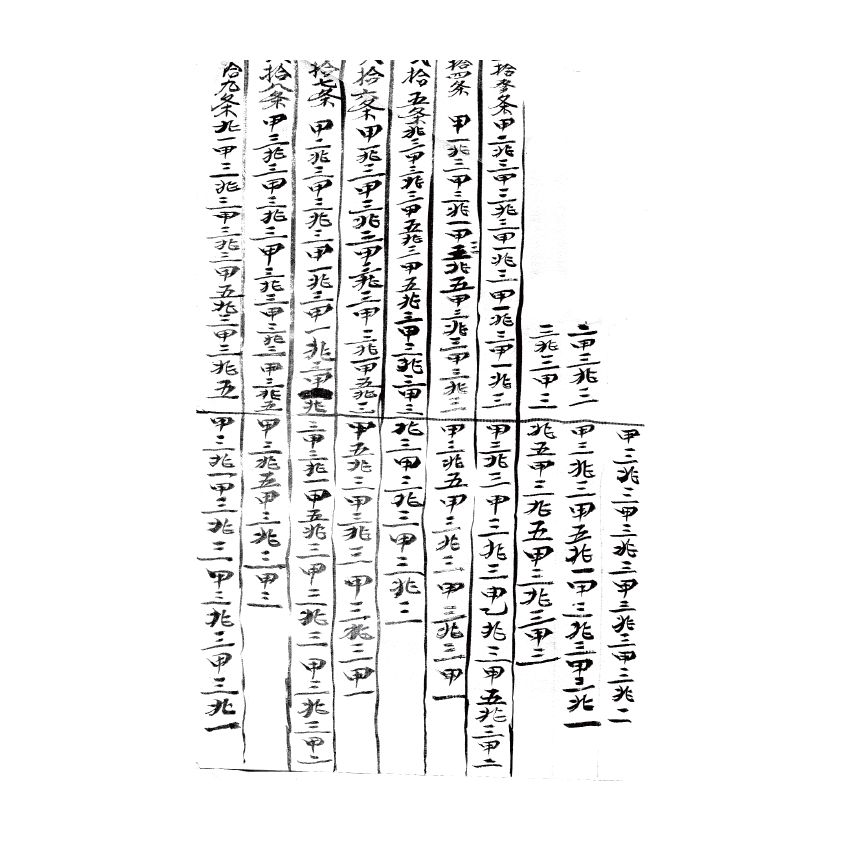 甲三兆三甲三兆三甲三兆三甲三兆二
二甲三兆三甲三兆三甲五兆一甲三兆三甲三兆一
三兆三甲三兆五甲三兆五甲三兆三甲三
拾叁条甲二兆三甲三兆三甲一兆三甲一兆三甲一兆三甲三兆三甲三兆三甲乙兆三甲五兆三甲二
拾四条甲一兆三甲三兆一甲五兆五甲三兆三甲三兆三甲三兆五甲三兆三甲三兆三甲一
拾五条兆三甲三兆三甲五兆三甲五兆三甲三兆三甲三兆三甲三兆三甲三兆三
拾六条甲一兆三甲三兆三甲三兆三甲三兆一甲五兆三甲五兆三甲三兆三甲三兆三甲一
拾七条甲二兆三甲三兆三甲一兆三甲一兆三甲兆三甲三兆一甲五兆三甲三兆三甲三兆三甲二
拾八条甲三兆三甲三兆三甲三兆三甲三兆三甲三兆五甲三兆五甲三兆三甲三
拾九条兆一甲三兆三甲三兆三甲五兆三甲三兆五甲三兆一甲三兆三甲三兆三甲三兆一